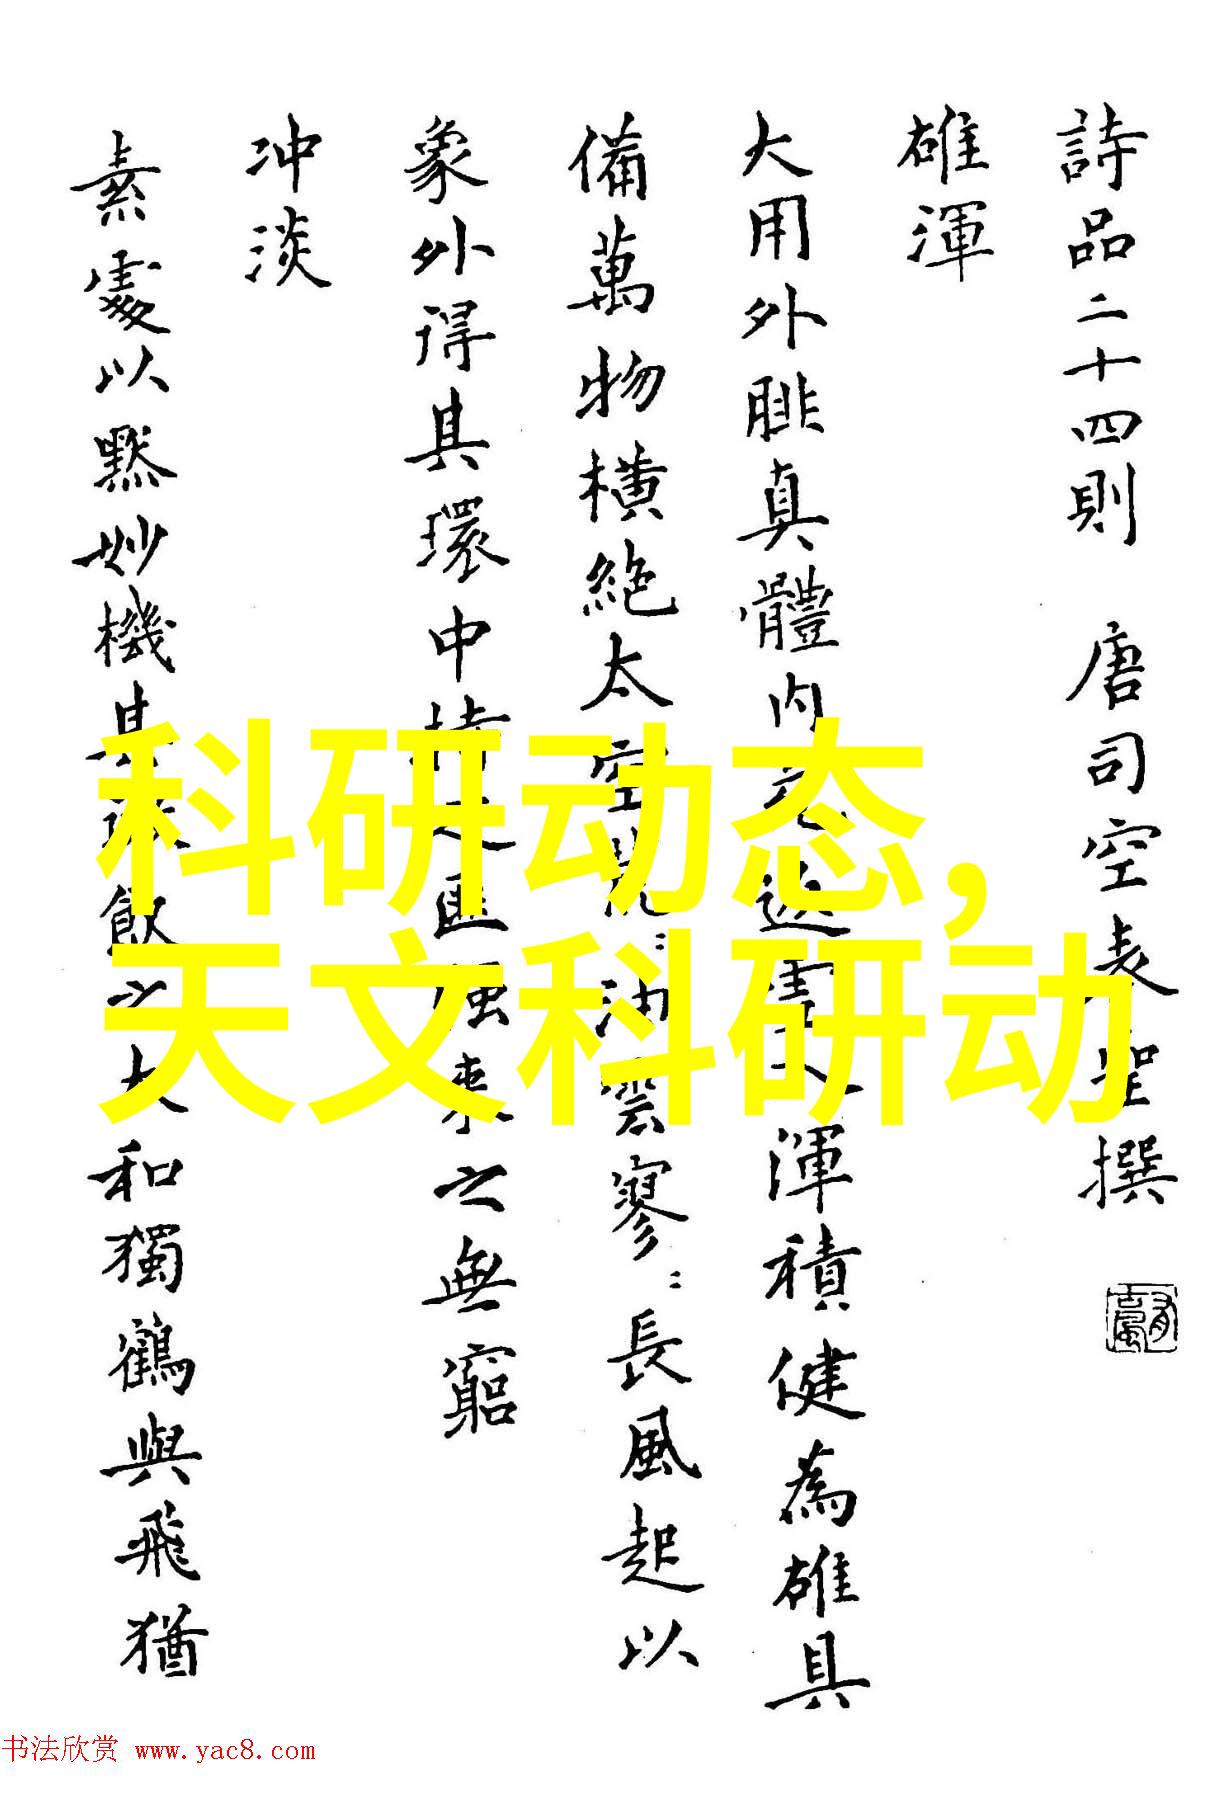 詩品二十四則 唐司空表聖撰
雄渾
大用外腓真體内充返虛入渾積健為雄具
備萬物橫絶太空荒:油雲寥:長風起以
象外得其環中持之匪强來之無窮
冲淡
素處以默妙機其微飲之太和獨鶴與飛猶
科研动态,
天文科研动
书法欣赏 www.yac8.com